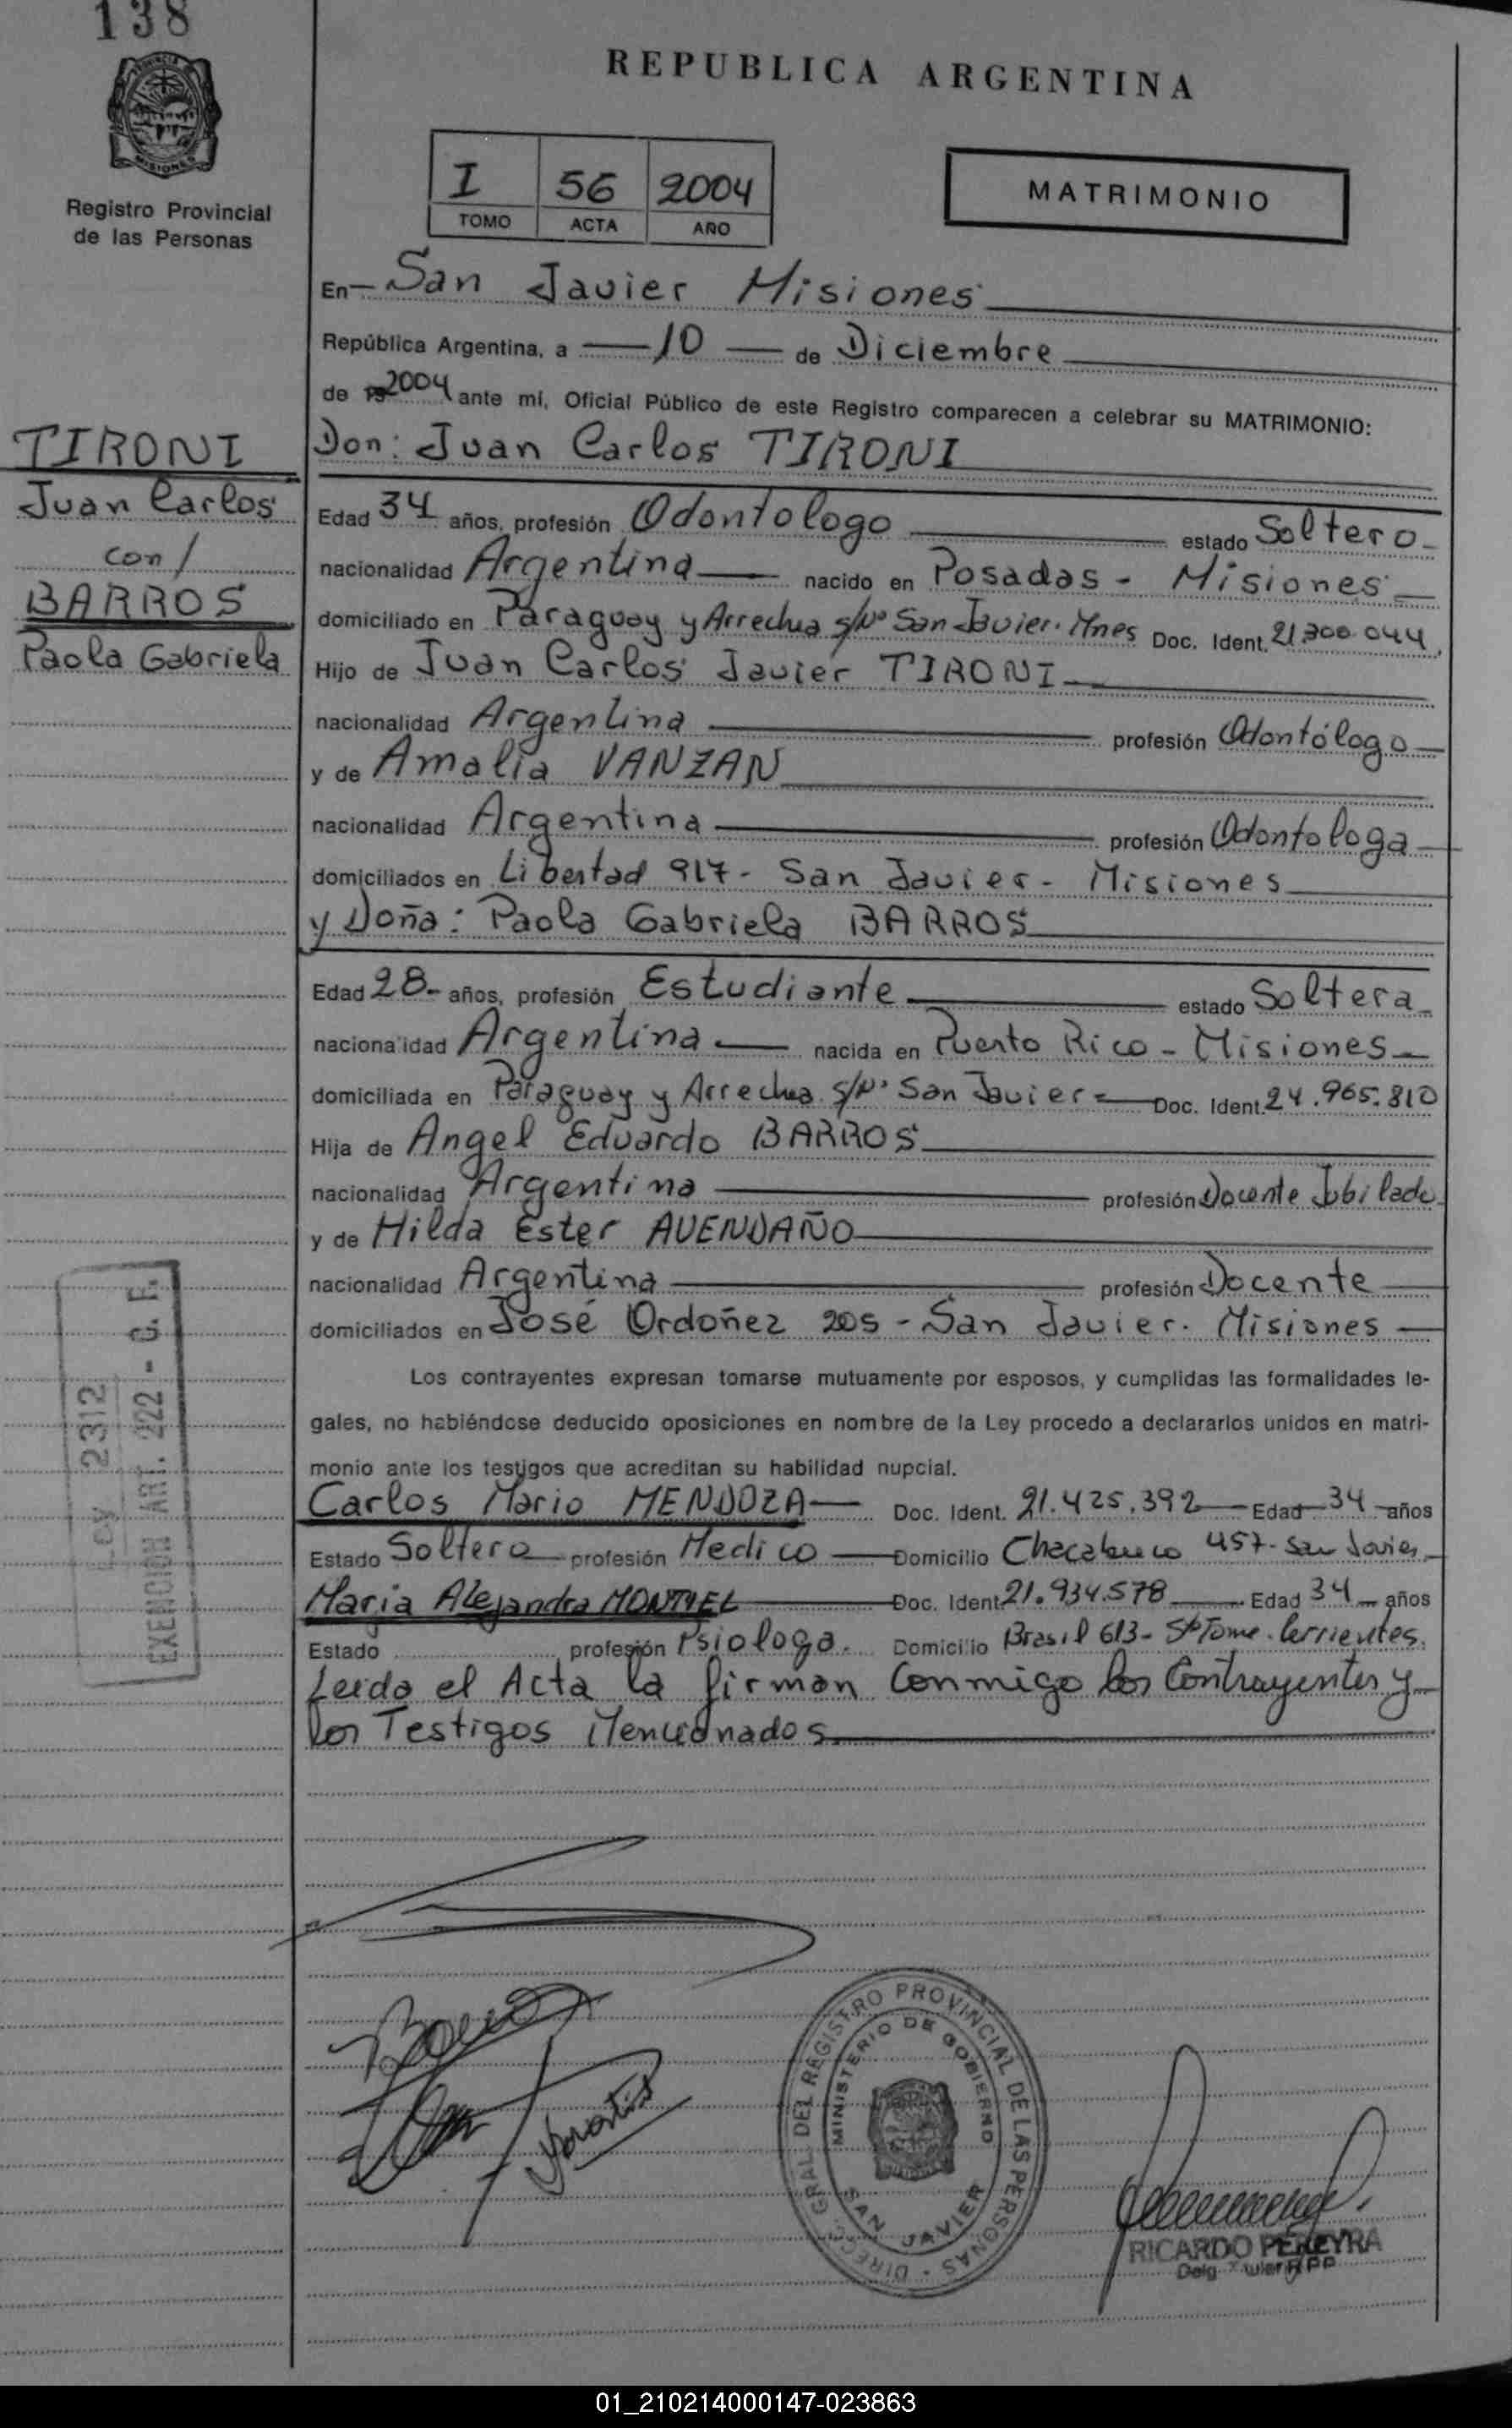 138
REPUBLICA ARGENTINA
MISIONES
Registro Provincial
de las Personas
I 56 2004
TOMO ACTA AÑO
MATRIMONIO
En San Javier Misiones
República Argentina, a 10 de Diciembre
de 19 2004 ante mí, Oficial Público de este Registro comparecen a celebrar su MATRIMONIO:
TIRONI
Juan Carlos
con/
BARROS
Paola Gabriela
Don: Juan Carlos TIRONI
Edad 34 años, profesión Odontologo estado Soltero
nacionalidad Argentina nacido en Posadas - Misiones
domiciliado en Paraguay y Arrechea s/Nº San Javier. Mnes Doc. Ident. 21.300.044
Hijo de Juan Carlos Javier TIRONI
nacionalidad Argentina profesión Odontólogo
y de Amalia VANZAN
nacionalidad Argentina profesión Odontologa
domiciliados en Libertad 917 - San Javier - Misiones
y Doña: Paola Gabriela BARROS
Edad 28 años, profesión Estudiante estado Soltera
nacionalidad Argentina nacida en Puerto Rico - Misiones
domiciliada en Paraguay y Arrechea s/Nº San Javier Doc. Ident. 24.965.810
Hija de Angel Eduardo BARROS
nacionalidad Argentina profesión Docente Jubilado
y de Hilda Ester AVENDAÑO
nacionalidad Argentina profesión Docente
domiciliados en José Ordoñez 205 - San Javier. Misiones
Los contrayentes expresan tomarse mutuamente por esposos, y cumplidas las formalidades le-
gales, no habiéndose deducido oposiciones en nombre de la Ley procedo a declararlos unidos en matri-
monio ante los testigos que acreditan su habilidad nupcial.
Carlos Mario MENDOZA Doc. Ident. 21.425.392 Edad 34 años
Estado Soltero profesión Medico Domicilio Chacabuco 457 - San Javier
Maria Alejandra MONTIEL Doc. Ident. 21.934.578 Edad 34 años
Estado profesión Psiologa. Domicilio Brasil 613 - Sto Tome - Corrientes.
Leida el Acta la firman conmigo los Contrayentes y
los Testigos Mencionados
Ley 2312
EXENCION ART. 222 - C. F.
DIRECC. GRAL. DEL REGISTRO PROVINCIAL DE LAS PERSONAS
MINISTERIO DE GOBIERNO
SAN JAVIER
RICARDO PEREYRA
01_210214000147-023863